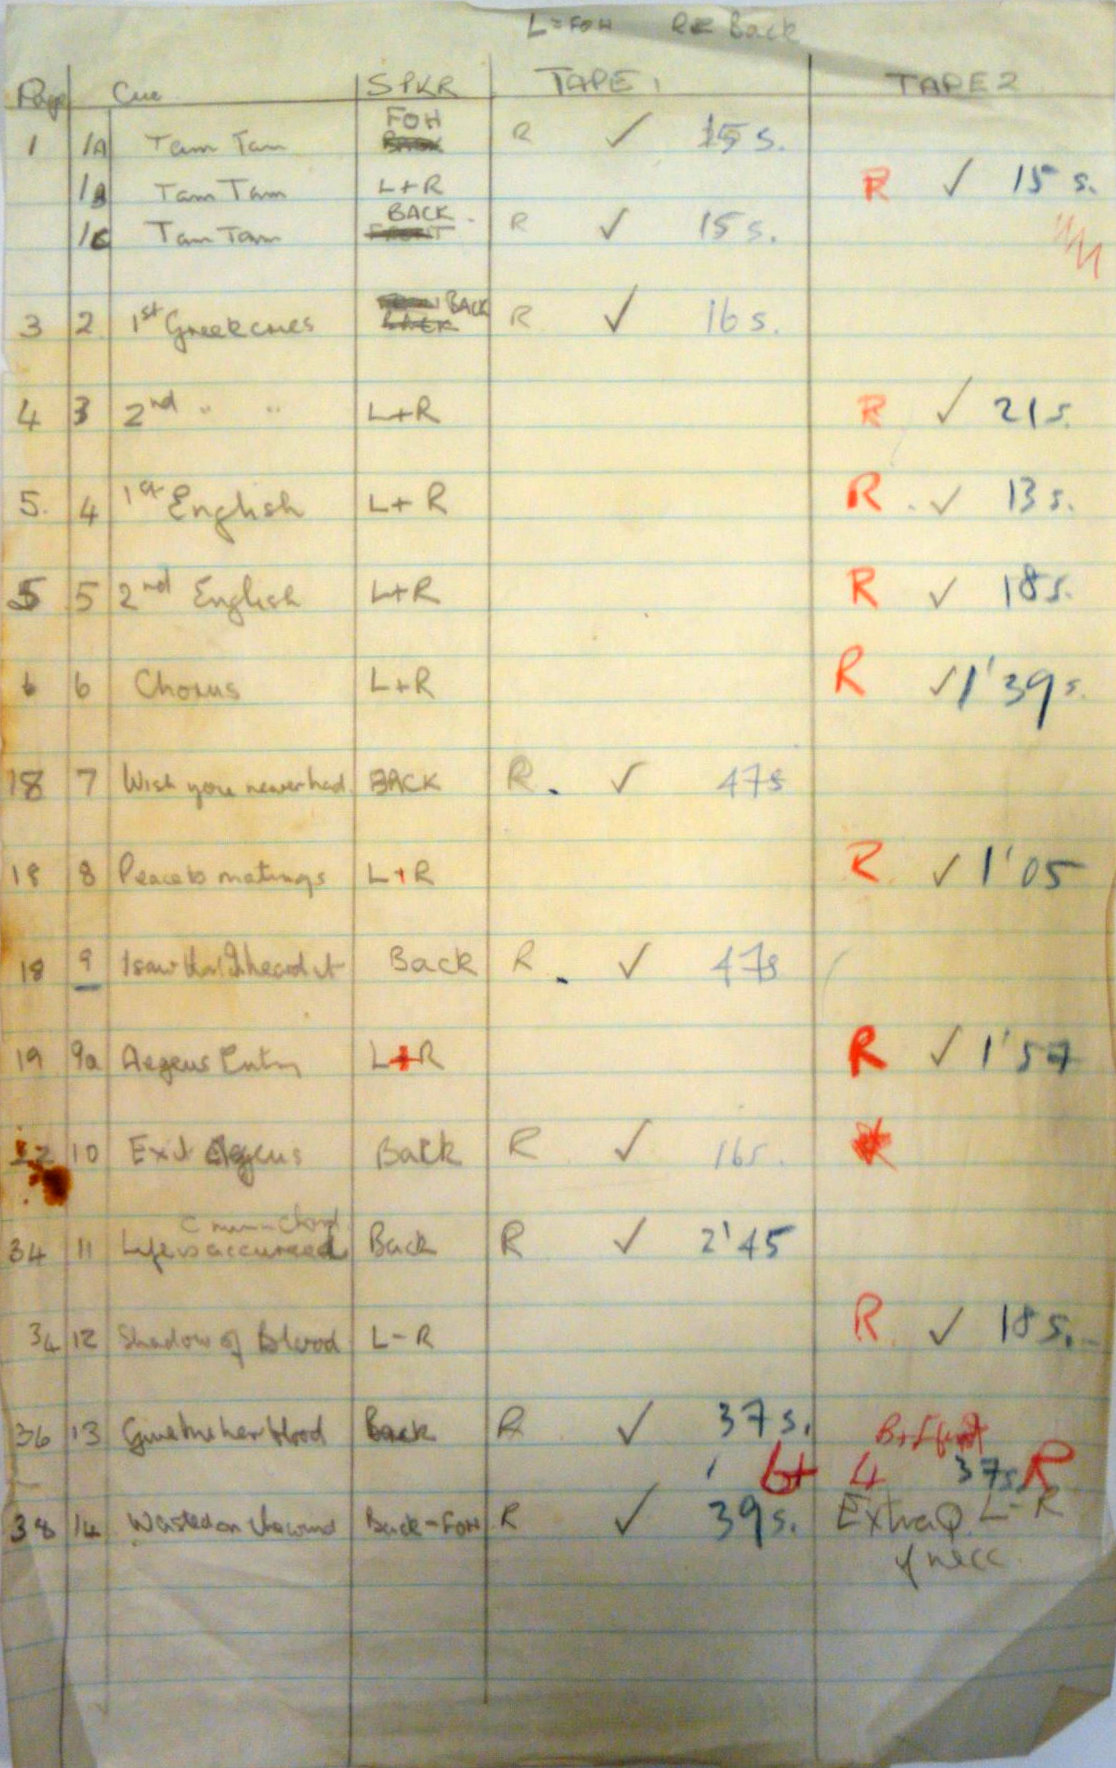 L = FOH R = Back
Page Cue SPKR TAPE 1 TAPE 2
FOH
1 1A Tam Tam R ✓ 15 s.
1B Tam Tam L+R R ✓ 15 s.
BACK
1C Tam Tam R ✓ 15 s.
BACK
3 2 1st Greek cries R ✓ 16 s.
4 3 2nd " " L+R R ✓ 21 s.
5. 4 1st English L+R R ✓ 13 s.
5 5 2nd English L+R R ✓ 18 s.
6 6 Chorus L+R R ✓ 1'39 s.
18 7 Wish you never had BACK R. ✓ 47s
18 8 Peace to matings L+R R ✓ 1'05
18 9 I saw I heard it Back R ✓ 47s
19 9a Aegeus Entry L+R R ✓ 1'57
10 Exit Aegeus Back R ✓ 16s.
C Chord
34 11 Life is accursed Back R ✓ 2'45
34 12 Shadow of Blood L-R R ✓ 18 s.
36 13 Give me her blood Back R ✓ 37 s.
4 37s R
38 14 Wasted on the wind Back-FOH R ✓ 39 s. Extra Q L-R
if necc